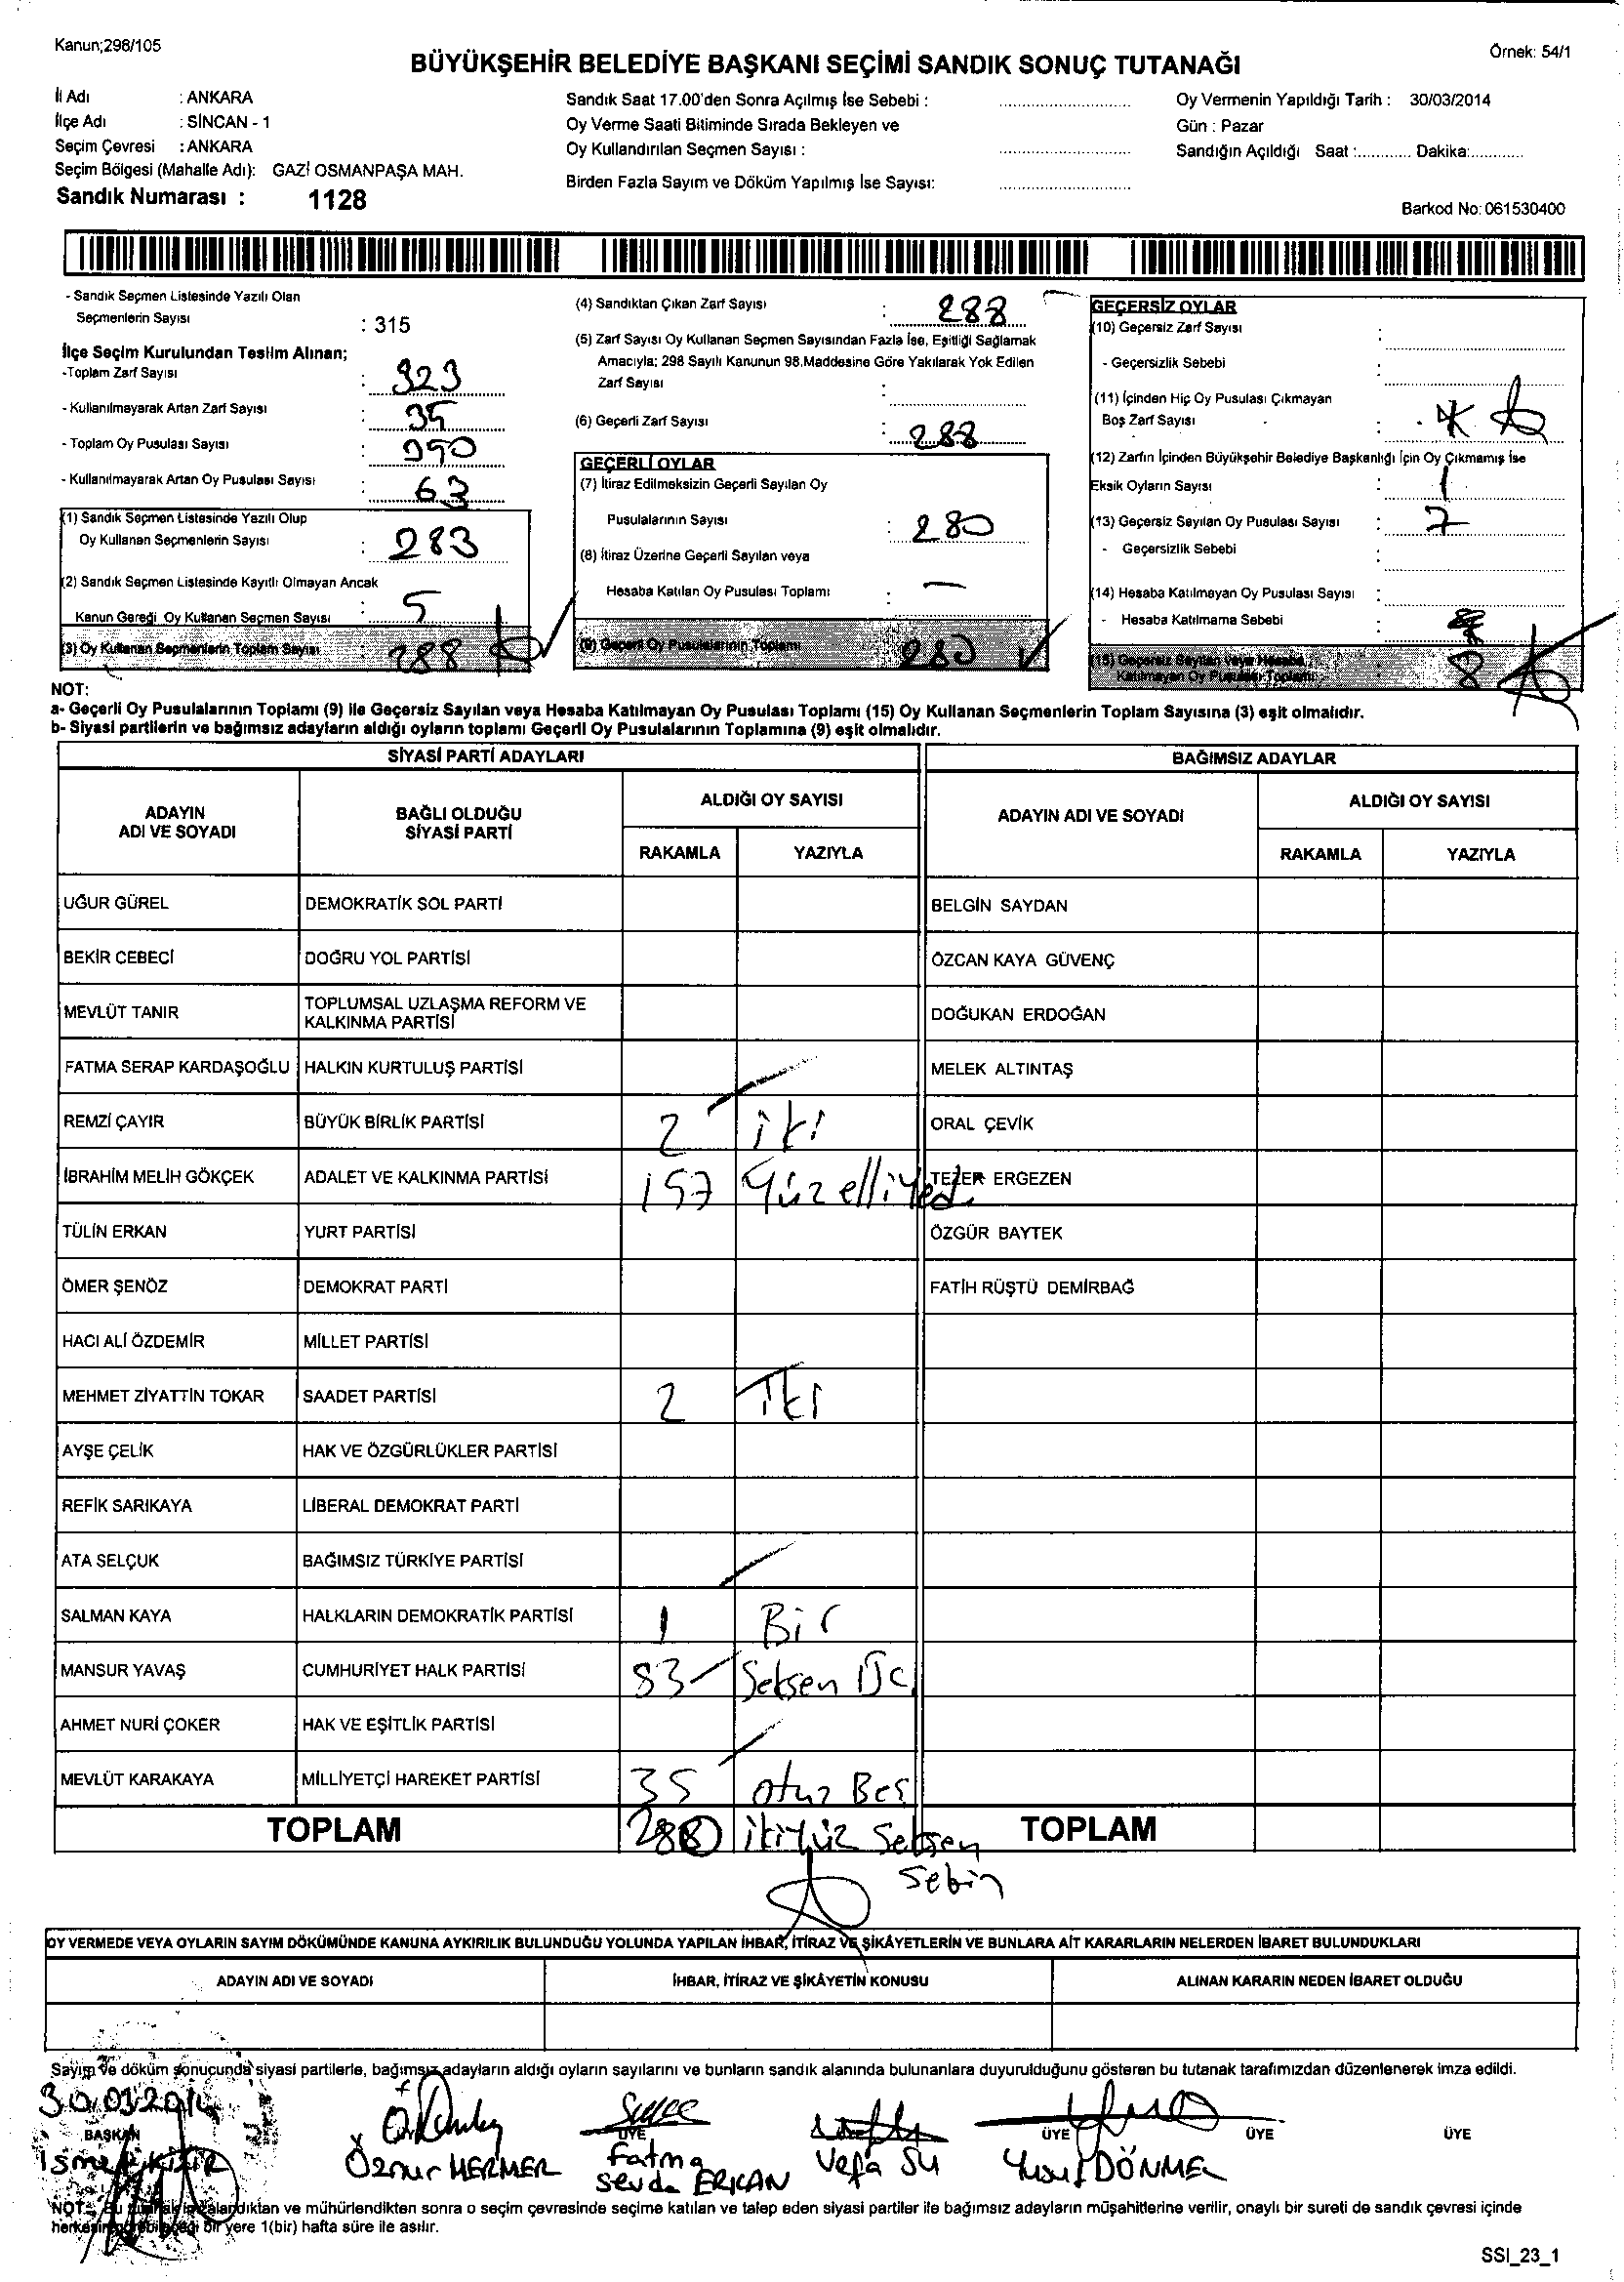 Kanun;298/105
Örnek: 54/1
BÜYÜKŞEHİR BELEDİYE BAŞKANI SEÇİMİ SANDIK SONUÇ TUTANAĞI
İl Adı : ANKARA
İlçe Adı : SİNCAN - 1
Seçim Çevresi : ANKARA
Seçim Bölgesi (Mahalle Adı): GAZİ OSMANPAŞA MAH.
Sandık Numarası : 1128
Sandık Saat 17.00'den Sonra Açılmış İse Sebebi :
Oy Verme Saati Bitiminde Sırada Bekleyen ve
Oy Kullandırılan Seçmen Sayısı :
Birden Fazla Sayım ve Döküm Yapılmış İse Sayısı:
Oy Vermenin Yapıldığı Tarih : 30/03/2014
Gün : Pazar
Sandığın Açıldığı Saat :............ Dakika:............
Barkod No: 061530400
- Sandık Seçmen Listesinde Yazılı Olan
Seçmenlerin Sayısı : 315
İlçe Seçim Kurulundan Teslim Alınan;
-Toplam Zarf Sayısı : 323
- Kullanılmayarak Artan Zarf Sayısı : 35
- Toplam Oy Pusulası Sayısı : 350
- Kullanılmayarak Artan Oy Pusulası Sayısı : 63
(1) Sandık Seçmen Listesinde Yazılı Olup
Oy Kullanan Seçmenlerin Sayısı : 283
(2) Sandık Seçmen Listesinde Kayıtlı Olmayan Ancak
Kanun Gereği Oy Kullanan Seçmen Sayısı : 5
(3) Oy Kullanan Seçmenlerin Toplam Sayısı 288
(4) Sandıktan Çıkan Zarf Sayısı : 288
(5) Zarf Sayısı Oy Kullanan Seçmen Sayısından Fazla İse, Eşitliği Sağlamak
Amacıyla; 298 Sayılı Kanunun 98.Maddesine Göre Yakılarak Yok Edilen
Zarf Sayısı :
(6) Geçerli Zarf Sayısı : 288
GEÇERLİ OYLAR
(7) İtiraz Edilmeksizin Geçerli Sayılan Oy
Pusulalarının Sayısı : 280
(8) İtiraz Üzerine Geçerli Sayılan veya
Hesaba Katılan Oy Pusulası Toplamı : —
(9) Geçerli Oy Pusulalarının Toplamı 280
GEÇERSİZ OYLAR
(10) Geçersiz Zarf Sayısı :
- Geçersizlik Sebebi :
(11) İçinden Hiç Oy Pusulası Çıkmayan
Boş Zarf Sayısı :
(12) Zarfın İçinden Büyükşehir Belediye Başkanlığı İçin Oy Çıkmamış İse
Eksik Oyların Sayısı : 1
(13) Geçersiz Sayılan Oy Pusulası Sayısı : 7
- Geçersizlik Sebebi :
(14) Hesaba Katılmayan Oy Pusulası Sayısı :
- Hesaba Katılmama Sebebi :
(15) Geçersiz Sayılan veya Hesaba
Katılmayan Oy Pusulası Toplamı: 8
NOT:
a- Geçerli Oy Pusulalarının Toplamı (9) ile Geçersiz Sayılan veya Hesaba Katılmayan Oy Pusulası Toplamı (15) Oy Kullanan Seçmenlerin Toplam Sayısına (3) eşit olmalıdır.
b- Siyasi partilerin ve bağımsız adayların aldığı oyların toplamı Geçerli Oy Pusulalarının Toplamına (9) eşit olmalıdır.
SİYASİ PARTİ ADAYLARI
BAĞIMSIZ ADAYLAR
ADAYIN ADI VE SOYADI
BAĞLI OLDUĞU SİYASİ PARTİ
ALDIĞI OY SAYISI
RAKAMLA YAZIYLA
ADAYIN ADI VE SOYADI
ALDIĞI OY SAYISI
RAKAMLA YAZIYLA
UĞUR GÜREL DEMOKRATİK SOL PARTİ BELGİN SAYDAN
BEKİR CEBECİ DOĞRU YOL PARTİSİ ÖZCAN KAYA GÜVENÇ
MEVLÜT TANIR TOPLUMSAL UZLAŞMA REFORM VE KALKINMA PARTİSİ DOĞUKAN ERDOĞAN
FATMA SERAP KARDAŞOĞLU HALKIN KURTULUŞ PARTİSİ MELEK ALTINTAŞ
REMZİ ÇAYIR BÜYÜK BİRLİK PARTİSİ 2 iki ORAL ÇEVİK
İBRAHİM MELİH GÖKÇEK ADALET VE KALKINMA PARTİSİ 157 Yüzelliyedi TEZER ERGEZEN
TÜLİN ERKAN YURT PARTİSİ ÖZGÜR BAYTEK
ÖMER ŞENÖZ DEMOKRAT PARTİ FATİH RÜŞTÜ DEMİRBAĞ
HACI ALİ ÖZDEMİR MİLLET PARTİSİ
MEHMET ZİYATTİN TOKAR SAADET PARTİSİ 2 İki
AYŞE ÇELİK HAK VE ÖZGÜRLÜKLER PARTİSİ
REFİK SARIKAYA LİBERAL DEMOKRAT PARTİ
ATA SELÇUK BAĞIMSIZ TÜRKİYE PARTİSİ
SALMAN KAYA HALKLARIN DEMOKRATİK PARTİSİ 1 Bir
MANSUR YAVAŞ CUMHURİYET HALK PARTİSİ 83 Seksen Üç
AHMET NURİ ÇOKER HAK VE EŞİTLİK PARTİSİ
MEVLÜT KARAKAYA MİLLİYETÇİ HAREKET PARTİSİ 35 Otuz Beş
TOPLAM 280 ikiYüz Seksen TOPLAM
OY VERMEDE VEYA OYLARIN SAYIM DÖKÜMÜNDE KANUNA AYKIRILIK BULUNDUĞU YOLUNDA YAPILAN İHBAR, İTİRAZ VE ŞİKÂYETLERİN VE BUNLARA AİT KARARLARIN NELERDEN İBARET BULUNDUKLARI
ADAYIN ADI VE SOYADI İHBAR, İTİRAZ VE ŞİKÂYETİN KONUSU ALINAN KARARIN NEDEN İBARET OLDUĞU
Sayım ve döküm sonucunda siyasi partilerle, bağımsız adayların aldığı oyların sayılarını ve bunların sandık alanında bulunanlara duyurulduğunu gösteren bu tutanak tarafımızdan düzenlenerek imza edildi.
30.03.2014
BAŞKAN ÜYE ÜYE ÜYE ÜYE
Öznur HERMER Fatma Sevda ERKAN Vefa SU Yusuf DÖNMEZ
NOT: Bu tutanak imzalandıktan ve mühürlendikten sonra o seçim çevresinde seçime katılan ve talep eden siyasi partiler ile bağımsız adayların müşahitlerine verilir, onaylı bir sureti de sandık çevresi içinde
herkesin görebileceği bir yere 1(bir) hafta süre ile asılır.
SSI_23_1